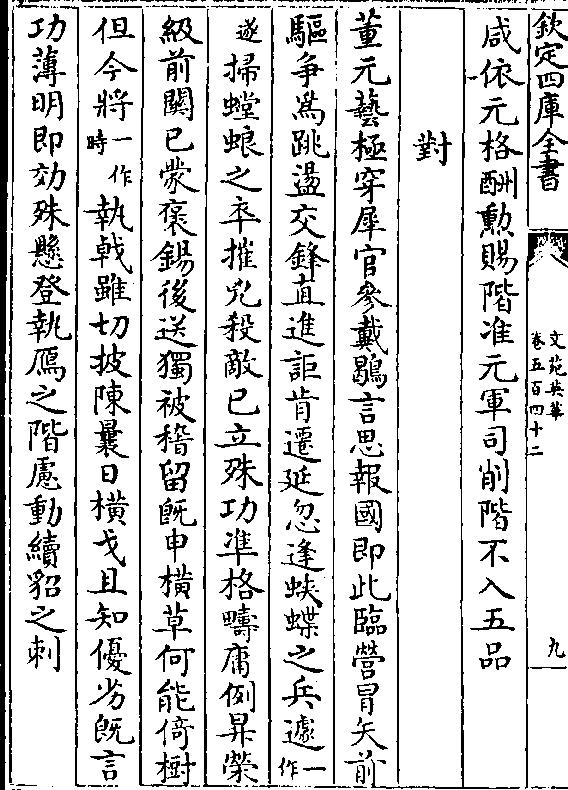 欽定四庫全書
文苑英華
卷五百四十二
九
咸依元格酬勲賜階准元軍司削階不入五品
對
董元藝極穿犀官參戴鶡言思報國即此臨營冒矢前
驅爭為跳盪交鋒直進詎肯遷延忽逢蛺蝶之兵遽一作
遂掃螳蜋之卒摧兇殺敵已立殊功凖格疇庸例昇榮
級前關已蒙襃錫後送獨被稽留既申橫草何能倚樹
但今將一作時執戟雖切披陳曩日橫戈且知優劣既言
功薄明即効殊懸登執鴈之階慮動續貂之刺